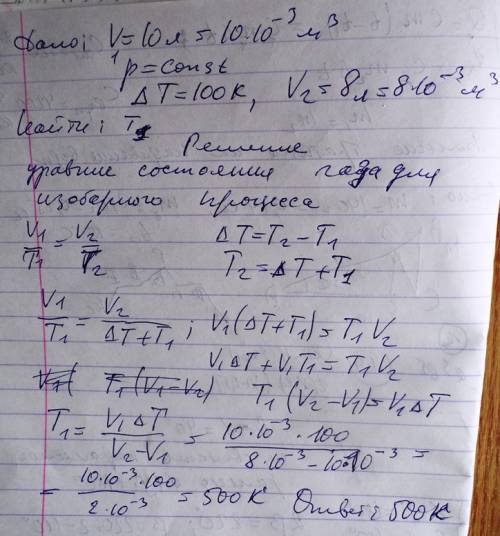 Дано: V₁=10л=10·10⁻³м³
p=const
ΔT=100K, V₂=8л=8·10⁻³м³
Найти: T₁
Решение
уравние состояния газа для
изобарного процесса
V₁/T₁=V₂/T₂ ΔT=T₂-T₁
T₂=ΔT+T₁
V₁/T₁=V₂/(ΔT+T₁); V₁(ΔT+T₁)=T₁V₂
V₁ΔT+V₁T₁=T₁V₂
V₁( T₁(V₁-V₂) T₁(V₂-V₁)=V₁ΔT
T₁=V₁ΔT/(V₂-V₁)=10·10⁻³·100/(8·10⁻³-10·10⁻³)=
=10·10⁻³·100/(2·10⁻³)=500K Ответ: 500K